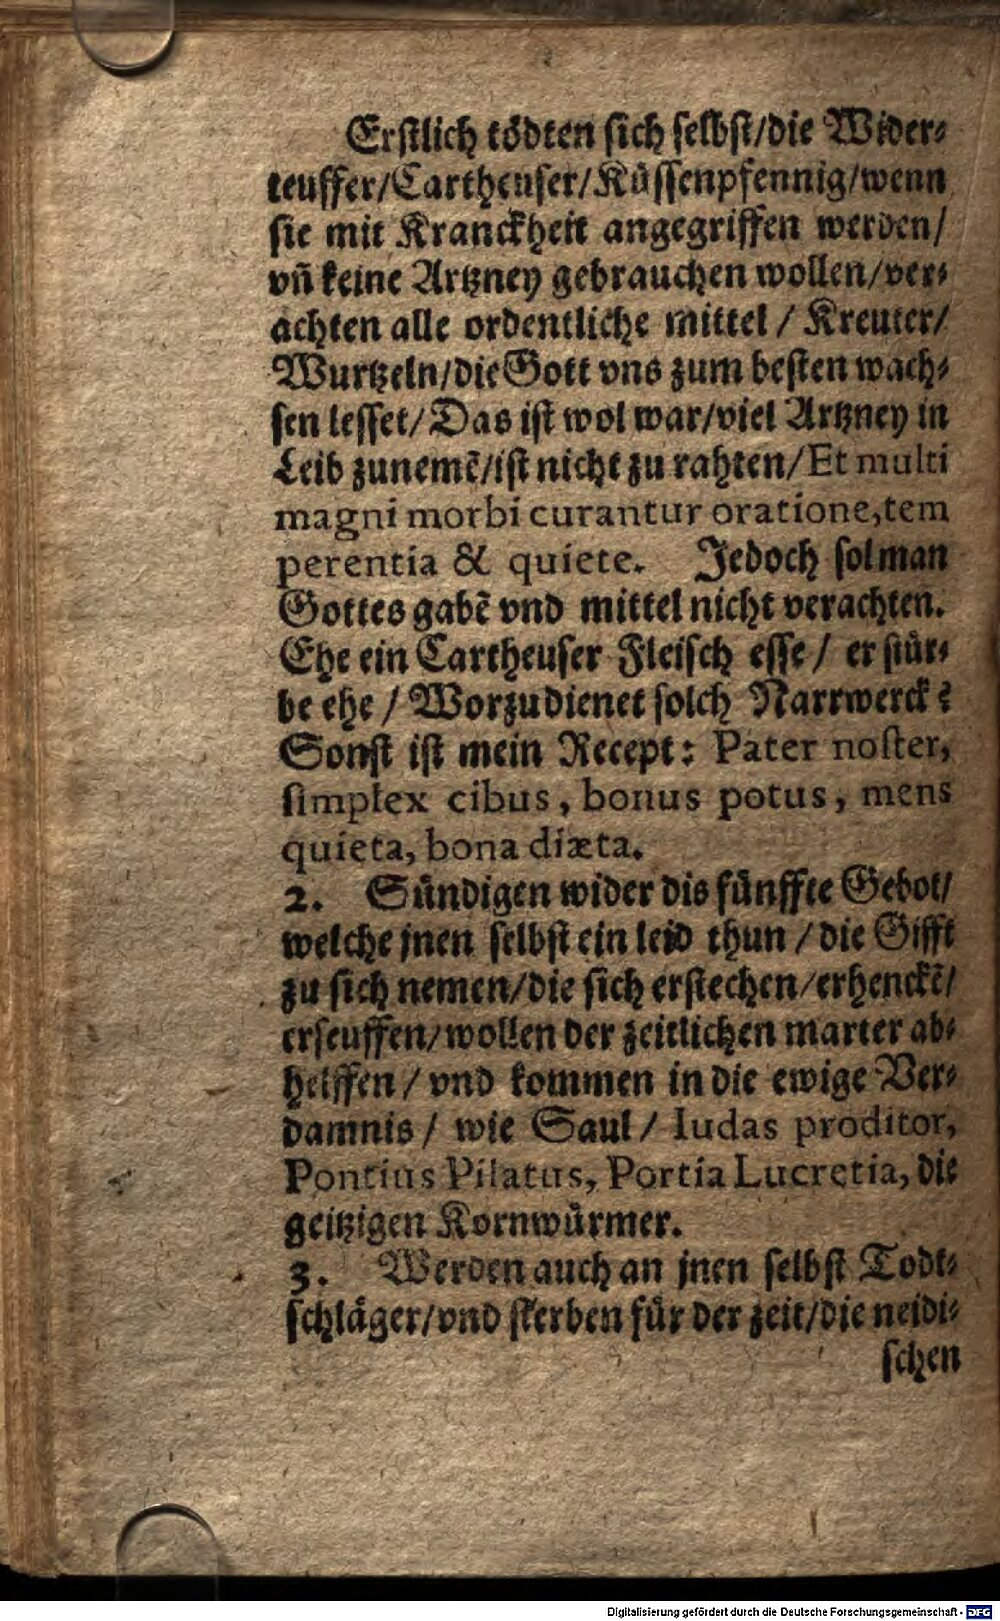 Erſtlich tödten ſich ſelbſt/die Wider⸗
teuffer/Cartheuſer/Küſſenpfennig/wenn
ſie mit Kranckheit angegriffen werden/
vn̄ keine Artzney gebrauchen wollen/ver⸗
achten alle ordentliche mittel / Kreuter/
Wurtzeln/die Gott vns zum beſten wach⸗
ſen leſſet/ Das iſt wol war/viel Artzney in
Leib zunemē/iſt nicht zu rahten/ Et multi
magni morbi curantur oratione,tem
perentia & quiete. Jedoch ſol man
Gottes gabē vnd mittel nicht verachten.
Ehe ein Cartheuſer Fleiſch eſſe / er ſtür⸗
be ehe / Worzu dienet ſolch Narrwerck?
Sonſt iſt mein Recept: Pater noſter,
ſimplex cibus, bonus potus, mens
quieta, bona diæta.
2. Sündigen wider dis fünffte Gebot/
welche jnen ſelbſt ein leid thun / die Gifft
zu ſich nemen/die ſich erſtechen/erhenckē/
erſeuffen/wollen der zeitlichen marter ab⸗
helffen / vnd kommen in die ewige Ver⸗
damnis / wie Saul / Iudas proditor,
Pontius Pilatus, Portia Lucretia, die
geitzigen Kornwürmer.
3. Werden auch an jnen ſelbſt Todt⸗
ſchläger/vnd ſterben für der zeit/die neidi⸗
ſchen
Digitalisierung gefördert durch die Deutsche Forschungsgemeinschaft - DFG